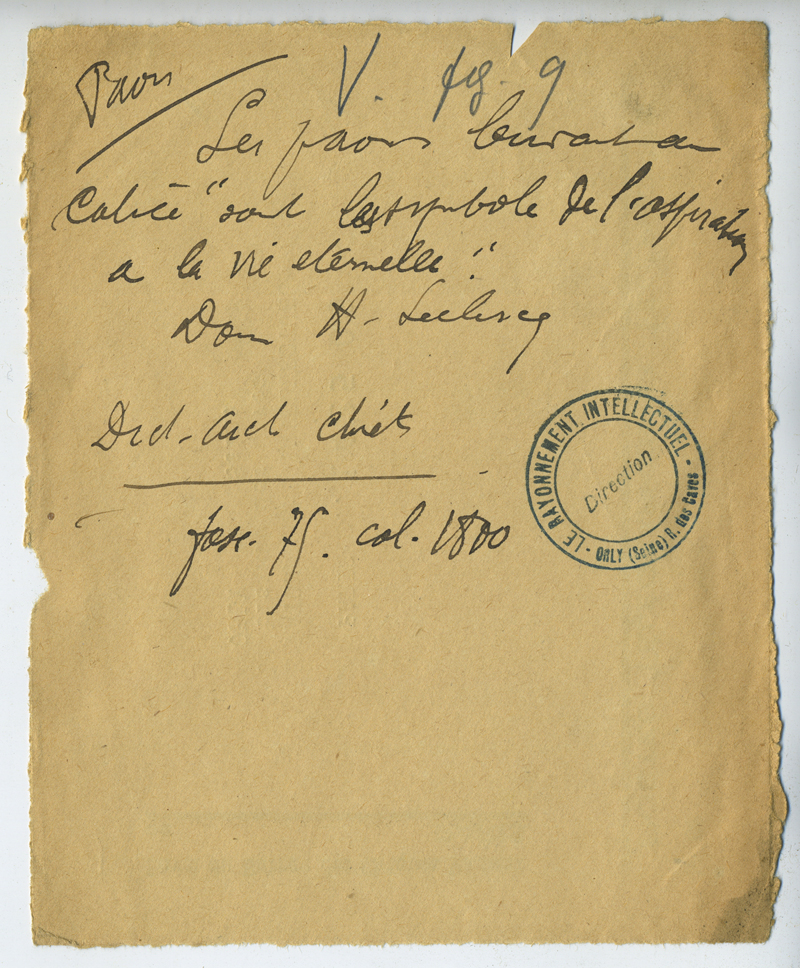 Paon
V. fig. 9
Les paons buvant au
Calice "sont le symbole de l'aspiration
a la vie eternelle".
Dom H. Leclercq
Dict. Arch Chrét
fasc. 75. col. 1800
LE RAYONNEMENT INTELLECTUEL - ORLY (Seine) R. des Caves -
Direction